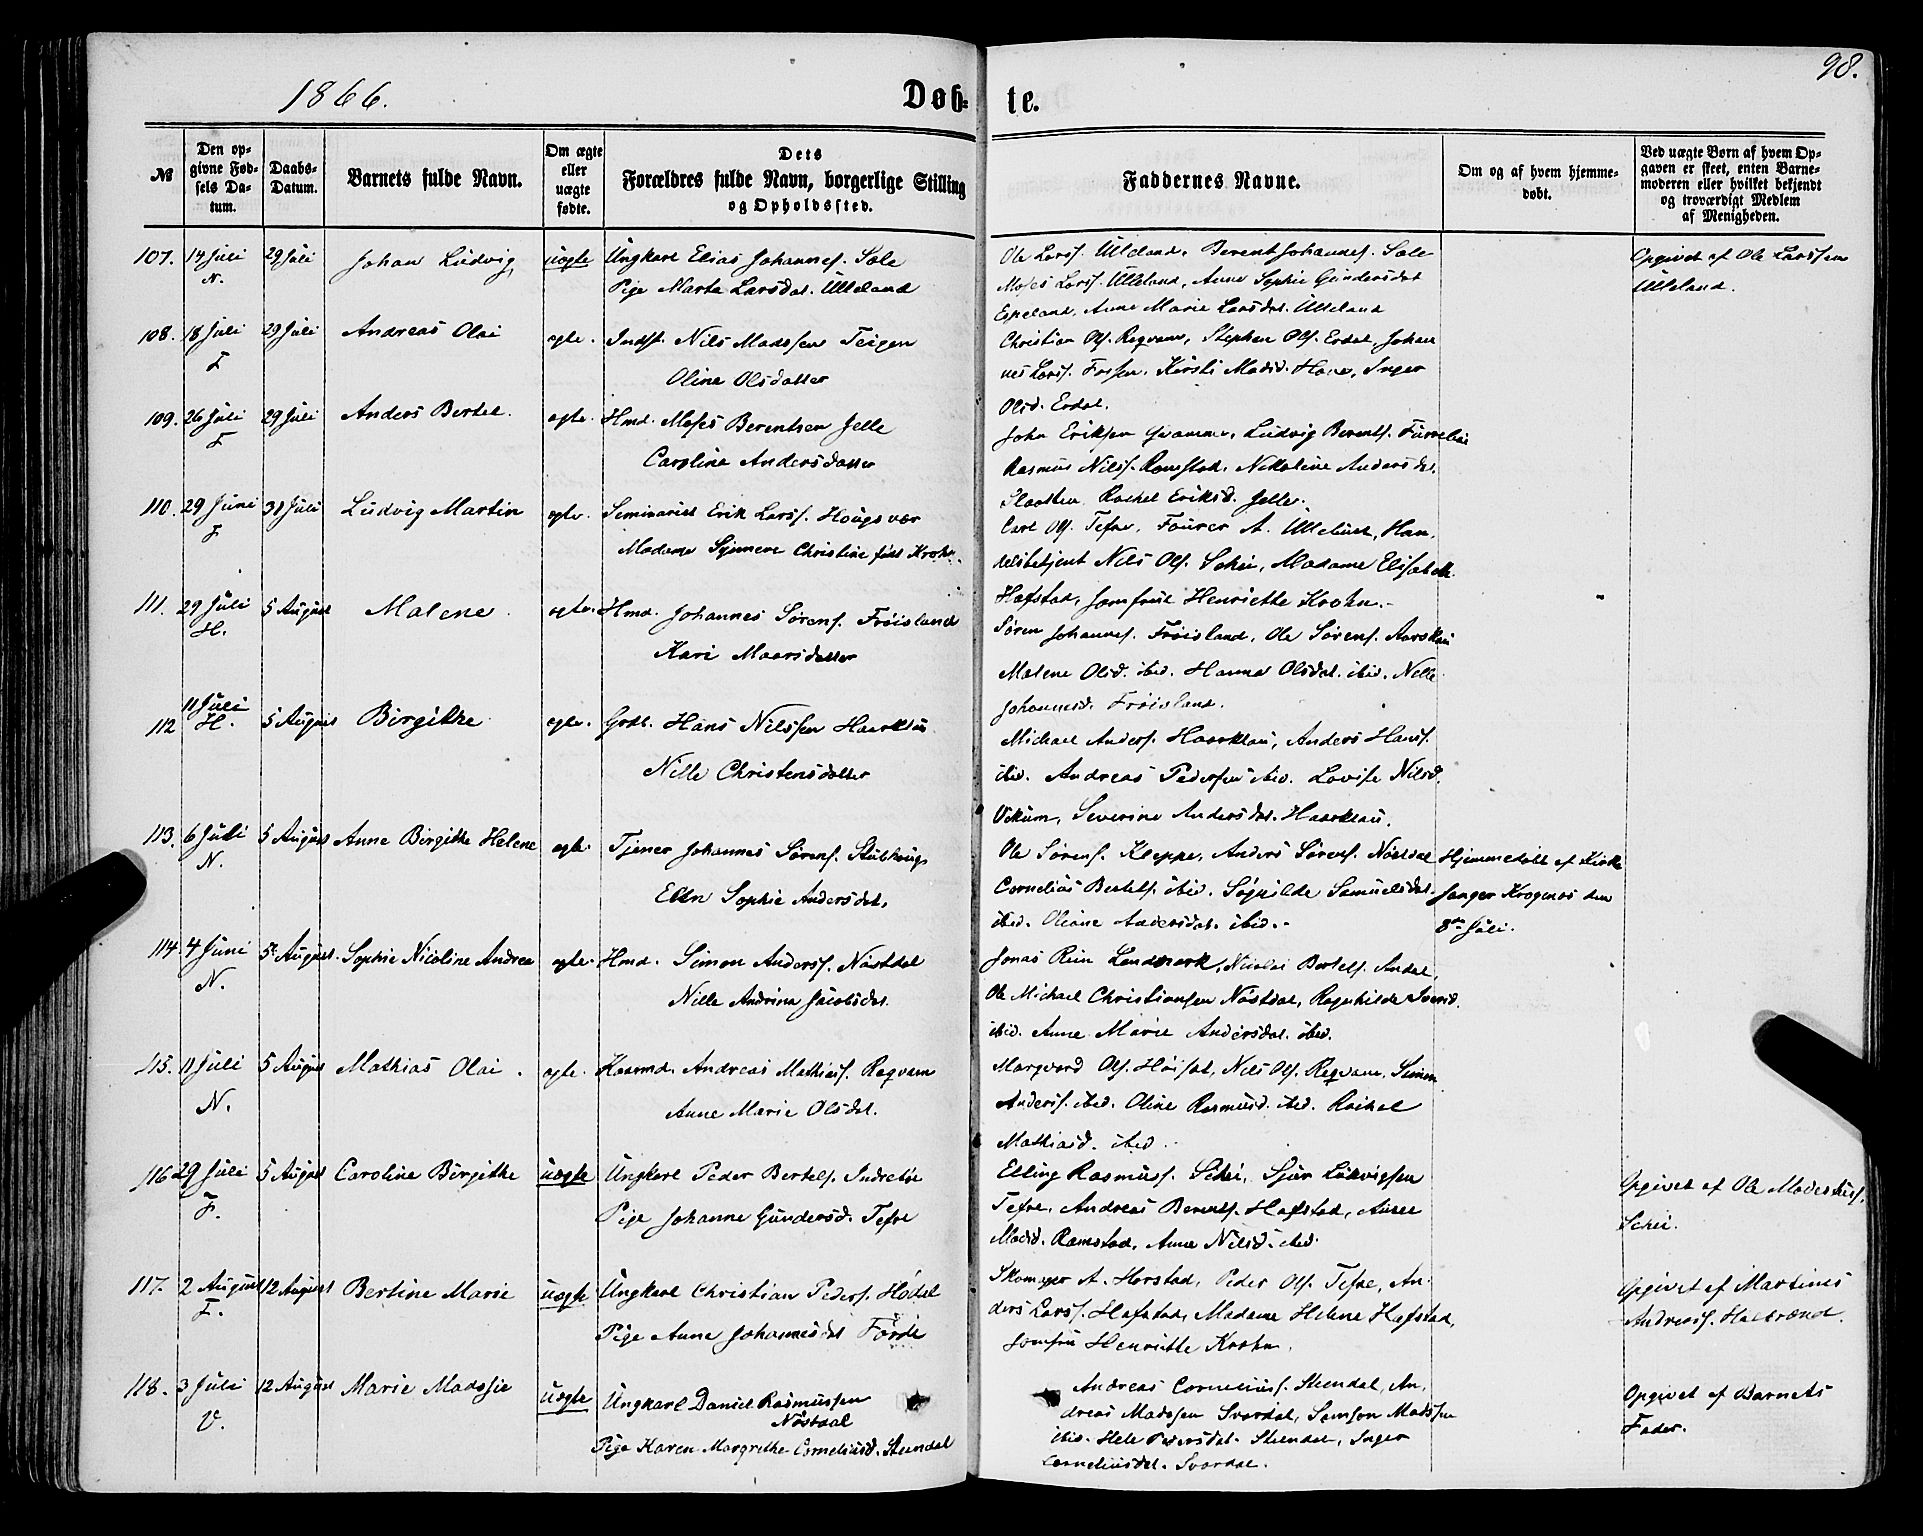 98.
1866.
Døb- te.
№
Den opgivne Fødsels Datum.
Daabs-Datum.
Barnets fulde Navn.
Om ægte eller uægte fødte.
Dets Forældres fulde Navn, borgerlige Stilling og Opholdssted.
Faddernes Navne.
Om og af hvem hjemmedøbt.
Ved uægte Børn af hvem Opgaven er skeet, enten Barnemoderen eller hvilket bekjendt og troværdigt Medlem af Menigheden.
107. 14 Juli 29 Juli Johan Ludvig uægte Ungkarl Elias Johannes. Sole
N. Pige Marta Larsdat. Ulleland
Ole Larss. Ulleland, Berent Johannes. Sole
Moses Larss. Ulleland, Anne Sophie Gundersdat
Espeland, Anne Marie Larsdat. Ulleland
Opgivet af Ole Larssen
Ulleland.
108. 18 Juli 29 Juli Andreas Olai ægte. Indst. Nils Madssen Teigen
F Oline Olsdatter
Christian Ols. Reqvam, Stephen Ols. Erdal, Johan
nes Larss. Fossen, Kirsti Madsd. Hove, Inger
Olsd. Erdal.
109. 26 Juli 29 Juli Anders Bertel. ægte. Hmd. Moses Berentsen Jelle
F Caroline Andersdatter
John Eriksen Gvammen, Ludvig Berents. Furrelie
Rasmus Nilss. Ramstad, Nikoline Andersdat.
Slaatten Rachel Eriksd. Jelle.
110. 29 Juni 31 Juli Ludvig Martin ægte. Seminarist Erik Larss. Hougsvær
F Madame Christine født Krohn.
Carl Ols. Tefre, Fourer A. Ulleland, Han.
delsbetjent Nils Ols. Schei, Madame Elisabeth
Hafstad, Jomfrue Henriette Krohn.
111. 29 Juli 5 August Malene ægte. Hmd. Johannes Sørens. Frøisland
H. Kari Maarsdatter
Søren Johannes. Frøisland, Ole Sørens. Aarsklei
Malene Olsd. ibid. Hanna Olsdat. ibid. Nelle
Johannesd. Frøisland.
11 Juli
112 H. 5 August Birgithe ægte. Grdb. Hans Nilssen Haarklau
Nille Christensdatter
Michael Anders. Haarklau, Anders Hanss.
ibid. Andreas Pedersen ibid. Lovise Nilsd.
Vikum, Severine Andersdat. Haarklau.
113. 6 Juli 5 August Anne Birgithe Helene ægte. Tjener Johannes Sørens. Stølhoug
N. Ellen Sophie Andersdat.
Ole Sørens. Kleppe, Anders Sørens. Nøstdal
Cornelius Bertels. ibid. Søgnilde Samuelsdat.
ibid. Oliane Andersdat. ibid.
Hjemmedøbt af Kirke
sanger Krognæs den
8de Juli.
114. 4 Juni 5 August. Sophie Nicoline Andrea ægte. Hmd. Simon Anderss. Nøstdal
N. Nille Andrina Jacobsdat.
Jonas Rein Landmark, Nicolai Bertels. Andal,
Ole Michael Christiansen Nøstdal, Ragnhilde Iversd.
ibid. Anne Marie Andersdat. ibid.
115. 11 Juli 5 August Mathias Olai. ægte. Kaarmd. Andreas Mathiass. Reqvam
N. Anne Marie Olsdat.
Marqvard Ols. Høisæt, Nils Ols. Reqvam, Simon
Anderss. ibid. Oline Rasmusd. ibid. Rachel
Mathiasd. ibid.
116 29 Juli 5 August Caroline Birgithe uægte Ungkarl Peder Bertels. Indrebø
F. Pige Johanne Gundersd. Tefre
Elling Rasmuss. Schei, Sjur Ludvigsen
Tefre, Andreas Berents. Hafstad, Anne
Madsd. Ramstad, Anne Nilsd. ibid.
Opgivet af Ole Modestuss.
Schei.
117. 2 August 12 August Bertine Marie uægte Ungkarl Christian Peders. Hødal
F. Pige Anne Johannesdat Førde
Skomager A. Horstad, Peder Ols. Tefre, An-
ders Larss. Hafstad, Madame Helene Hafstad,
Jomfru Henriette Krohn.
Opgivet af Martines
Andreass. Halbrænd.
118. 3 Juli 12 August Marie Madssie uægte Ungkarl Daniel Rasmussen
Nøstdal
V. Pige Karen Margrethe Corneliusd. Steendal
Andreas Corneliuss. Steendal, An.
dreas Madssen Svardal, Samson Madssen
ibid. Hele Pedersdat. Steendal, Inger
Corneliusdat. Svardal.
Opgivet af Barnets
Fader.